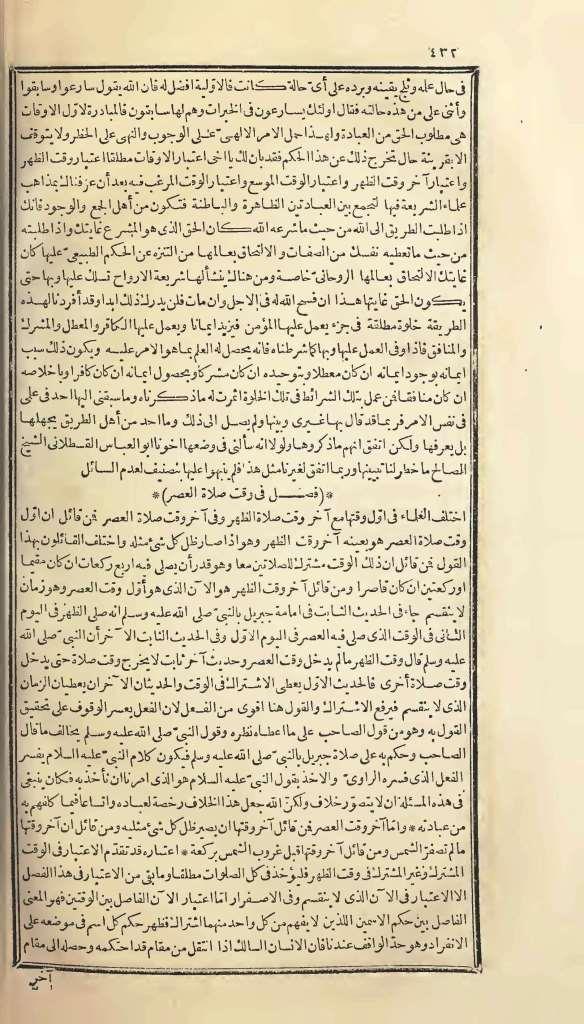 ٤٣٢
فى حال عمله وثلج يقينه وبرده على أى حالة كانت فالاولية افضل له فان الله يقول سارعوا وسابقوا
وأثنى على من هذه حالته فقال اولئك يسارعون فى الخيرات وهم لها سابقون فالمبادرة لاول الاوقات
هى مطلوب الحق من العبادة ولهذا حمل الامر الالهى على الوجوب والنهى على الحظر ولا يتوقف
الا بقرينة حال تخرج ذلك عن هذا الحكم فقد بان لك يا اخى اعتبار الاوقات مطلقا اعتبار وقت الظهر
واعتبار آخر وقت الظهر واعتبار الوقت الموسع واعتبار الوقت المرغب فيه بعد أن عرفناك بمذاهب
علماء الشريعة فيها لتجمع بين العبادتين الظاهرة والباطنة فتكون من أهل الجمع والوجود فانك
اذا طلبت الطريق الى الله من حيث ما شرعه الله كان الحق الذى هو المشرع غايتك واذا طلبته
من حيث ما تعطيه نفسك من الصفات والالتحاق بعالمها من التنزه عن الحكم الطبيعى عليها كان
غايتك الالتحاق بعالمها الروحانى خاصة ومن هناك ينشأ لها شريعة الارواح تسلك عليها وبها حتى
يكون الحق غايتها هذا ان فسح الله له فى الاجل وان مات فلن يدرك ذلك ابدا وقد أفردنا لهذه
الطريقة خلوة مطلقة فى جزء يعمل عليها المؤمن فيزيد ايمانا ويعمل عليها الكافر والمعطل والمشرك
والمنافق فاذا وفى العمل عليها وبها كما شرطناه فانه يحصل له العلم بما هو الامر عليه ويكون ذلك سبب
ايمانه بوجود ايمانه ان كان معطلا وبتوحيده ان كان مشركا وبحصول ايمانه ان كان كافرا وباخلاصه
ان كان منافقا فمن عمل بتلك الشرائط فى تلك الخلوة اثمرت له ما ذكرناه وما سبقنى اليها احد فى علمى
فى نفس الامر فربما قد قال بها غيرى وبينها ولم يصل الى ذلك وما احد من أهل الطريق يجهلها
بل يعرفها ولكن اتفق انهم ما ذكروها ولولا انه سألنى فى وضعها اخونا ابو العباس القسطلانى الشيخ
الصالح ما خطر لنا تبيينها وربما اتفق لغيرنا مثل هذا فلم ينبهوا عليها بتصنيف لعدم السائل
*(فصل فى وقت صلاة العصر)*
اختلف العلماء فى اول وقتها مع آخر وقت صلاة الظهر وفى آخر وقت صلاة العصر فمن قائل ان اول
وقت صلاة العصر هو بعينه آخر وقت الظهر وهو اذا صار ظل كل شئ مثله واختلف القائلون بهذا
القول فمن قائل ان ذلك الوقت مشترك للصلاتين معا وهو قدر أن يصلى فيه اربع ركعات ان كان مقيما
او ركعتين ان كان قاصرا ومن قائل آخر وقت الظهر هو الآن الذى هو أول وقت العصر وهو زمان
لا ينقسم جاء فى الحديث الثابت فى امامة جبريل بالنبى صلى الله عليه وسلم انه صلى الظهر فى اليوم
الثانى فى الوقت الذى صلى فيه العصر فى اليوم الاول وفى الحديث الثابت الآخر أن النبى صلى الله
عليه وسلم قال وقت الظهر ما لم يدخل وقت العصر وحديث آخر ثابت لا يخرج وقت صلاة حتى يدخل
وقت صلاة أخرى فالحديث الاول يعطى الاشتراك فى الوقت والحديثان الآخران يعطيان الزمان
الذى لا ينقسم فيرفع الاشتراك والقول هنا اقوى من الفعل لان الفعل يعسر الوقوف على تحقيق
القول به وهو من قول الصاحب على ما اعطاه نظره وقول النبى صلى الله عليه وسلم يخالف ما قال
الصاحب وحكم به على صلاة جبريل بالنبى صلى الله عليه وسلم فيكون كلام النبى عليه السلام يفسر
الفعل الذى فسره الراوى والاخذ بقول النبى عليه السلام هو الذى امرنا ان نأخذ به فكان ينبغى
فى هذه المسئلة ان لا يتصور خلاف ولكن الله جعل هذا الخلاف رحمة لعباده واتساعا فيما كلفهم به
من عبادته * واما آخر وقت العصر فمن قائل آخر وقتها ان يصير ظل كل شئ مثليه ومن قائل ان آخر وقتها
ما لم تصفر الشمس ومن قائل آخر وقتها قبل غروب الشمس بركعة * اعتباره قد تقدم الاعتبار فى الوقت
المشترك وغير المشترك فى وقت الظهر فليؤخذ فى كل الصلوات مطلقا وما بقى من الاعتبار فى هذا الفصل
الا الاعتبار فى الآن الذى لا ينقسم وفى الاصفرار اما اعتبار الآن الفاصل بين الوقتين فهو المعنى
الفاصل بين حكم الاسمين اللذين لا يفهم من كل واحد منهما اشتراك فظهر حكم كل اسم فى موضعه على
الانفراد وهو حد الواقف عندنا فان الانسان السالك اذا انتقل من مقام قد احتكمه وحصله الى مقام
آخر